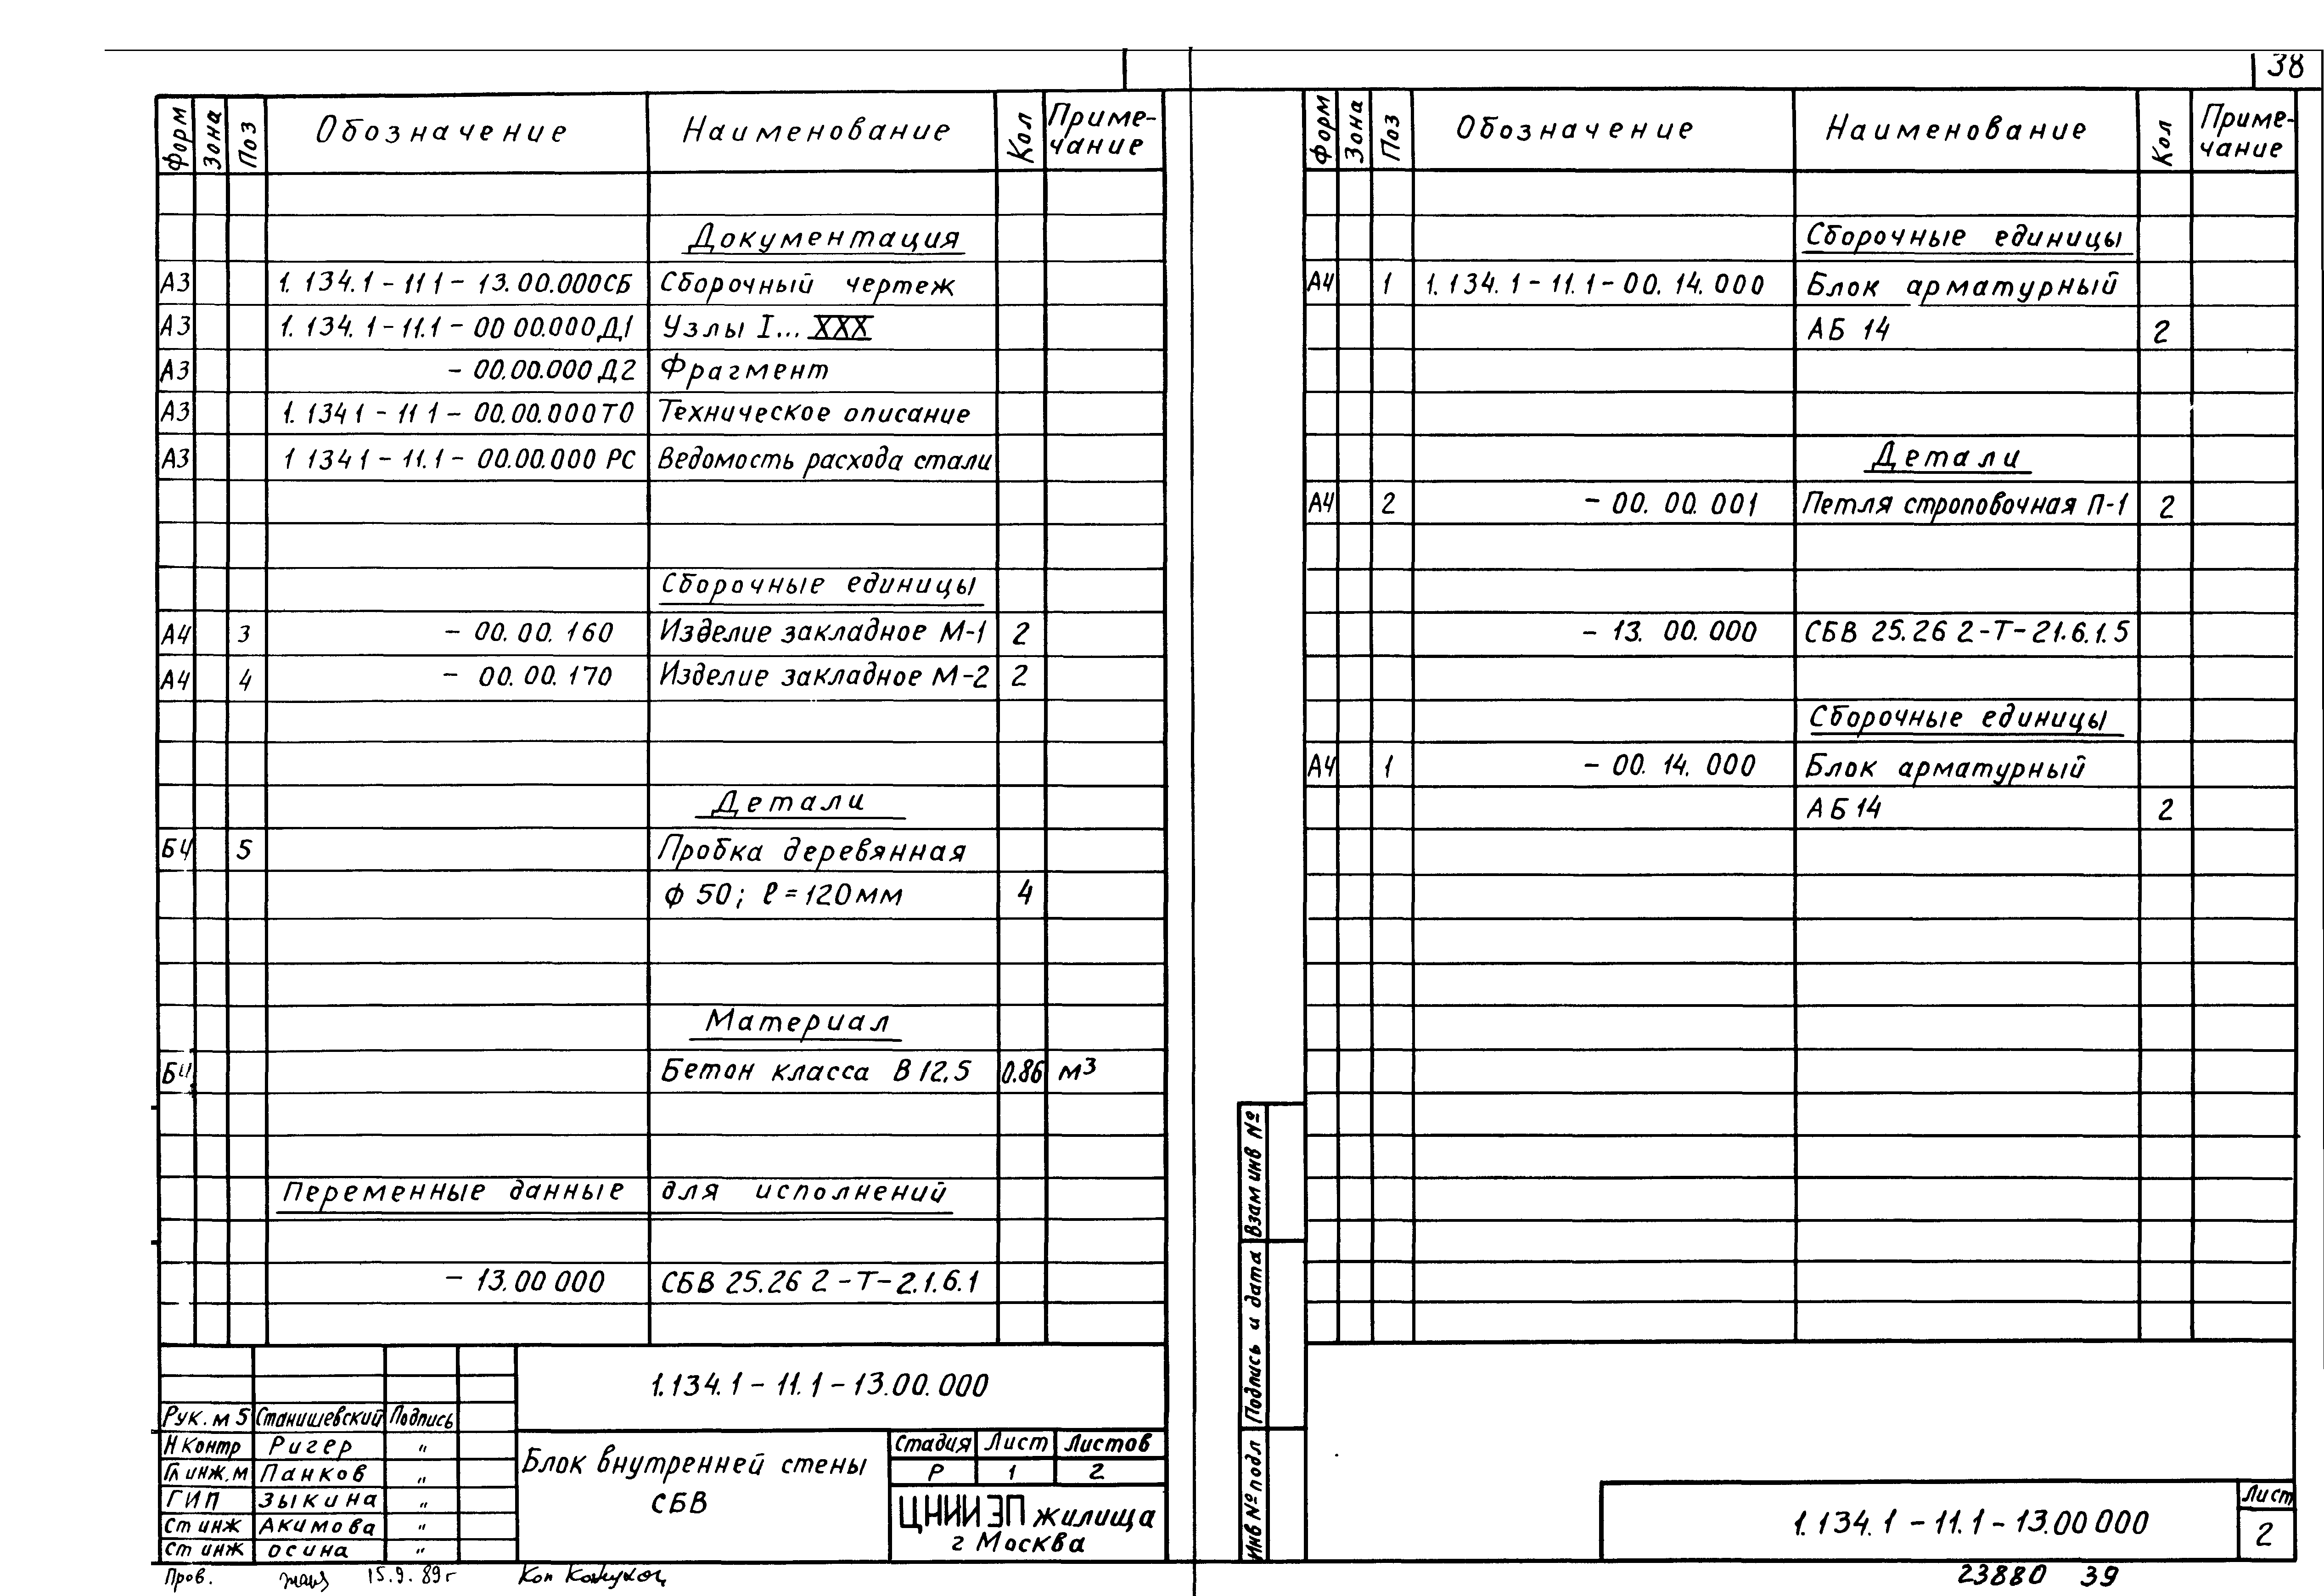 38
Форм Зона Поз Обозначение Наименование Кол Приме-
чание
Документация
А3 1. 134.1 - 11 1 - 13.00.000СБ Сборочный чертеж
А3 1. 134. 1 - 11.1 - 00 00.000Д1 Узлы I... XXX
А3 - 00.00.000 Д2 Фрагмент
А3 1. 134 1 - 11 1 - 00.00.000ТО Техническое описание
А3 1 134 1 - 11.1 - 00.00.000 РС Ведомость расхода стали
Сборочные единицы
А4 3 - 00. 00. 160 Изделие закладное М-1 2
А4 4 - 00. 00. 170 Изделие закладное М-2 2
Детали
БЧ 5 Пробка деревянная
ф 50; ℓ = 120мм 4
Материал
БЧ Бетон класса В 12.5 0.86 м3
Переменные данные для исполнений
- 13.00 000 СБВ 25.26 2 - Т - 2.1.6.1
1.134.1 - 11.1 - 13.00.000
Рук. м 5 Станишевский Подпись
Н Контр Ригер "
Гл инж.м Панков "
ГИП Зыкина "
Ст инж Акимова "
Ст инж Осина "
Блок внутренней стены
СБВ
Стадия Лист Листов
Р 1 2
ЦНИИЭП жилища
г Москва
Пров. 15.9.89г Коп
Форм Зона Поз Обозначение Наименование Кол Приме-
чание
Сборочные единицы
А4 1 1. 134.1 - 11.1 - 00. 14. 000 Блок арматурный
АБ 14 2
Детали
А4 2 - 00. 00. 001 Петля строповочная П-1 2
- 13. 00. 000 СБВ 25.26 2 - Т - 21.6.1.5
Сборочные единицы
А4 1 - 00. 14. 000 Блок арматурный
АБ 14 2
Взам инв №
Подпись и дата
Инв № подл
1.134.1 - 11.1 - 13.00 000
Лист
2
23880 39